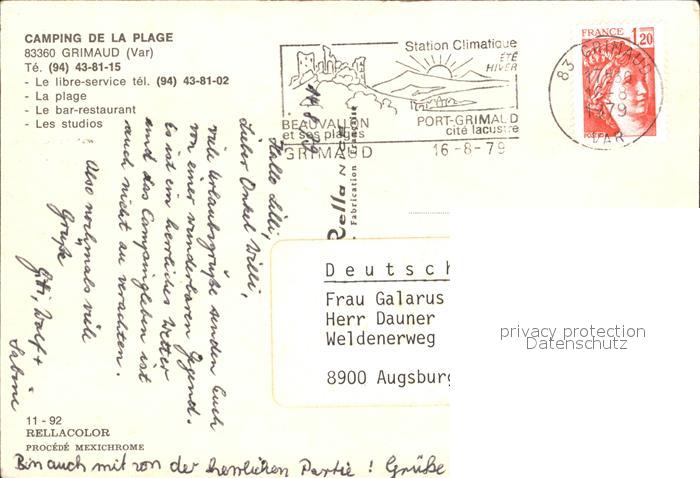 CAMPING DE LA PLAGE
83360 GRIMAUD (Var)
Té. (94) 43-81-15
- Le libre-service tél. (94) 43-81-02
- La plage
- Le bar-restaurant
- Les studios
Station Climatique
ÉTÉ
HIVER
BEAUVALLON
et ses plages
PORT-GRIMAUD
cité lacustre
GRIMAUD
16-8-79
FRANCE 1,20
83 GRIMAUD
16-8
1979
VAR
Rella
Fabrication Française
14.8.79
Hallo Lilli,
Lieber Onkel Willi,
viele Urlaubsgrüße senden Euch
von einer wunderbaren Gegend.
Es ist ein herrliches Wetter
und das Campingleben ist
auch nicht zu verachten.
Also nochmals viele
Grüße
Gitti, Wolf +
Sabine
Deutsch
Frau Galarus
Herr Dauner
Weldenerweg
8900 Augsburg
privacy protection
Datenschutz
11 - 92
RELLACOLOR
PROCÉDÉ MEXICHROME
Bin auch mit von der herrlichen Partie ! Grüße